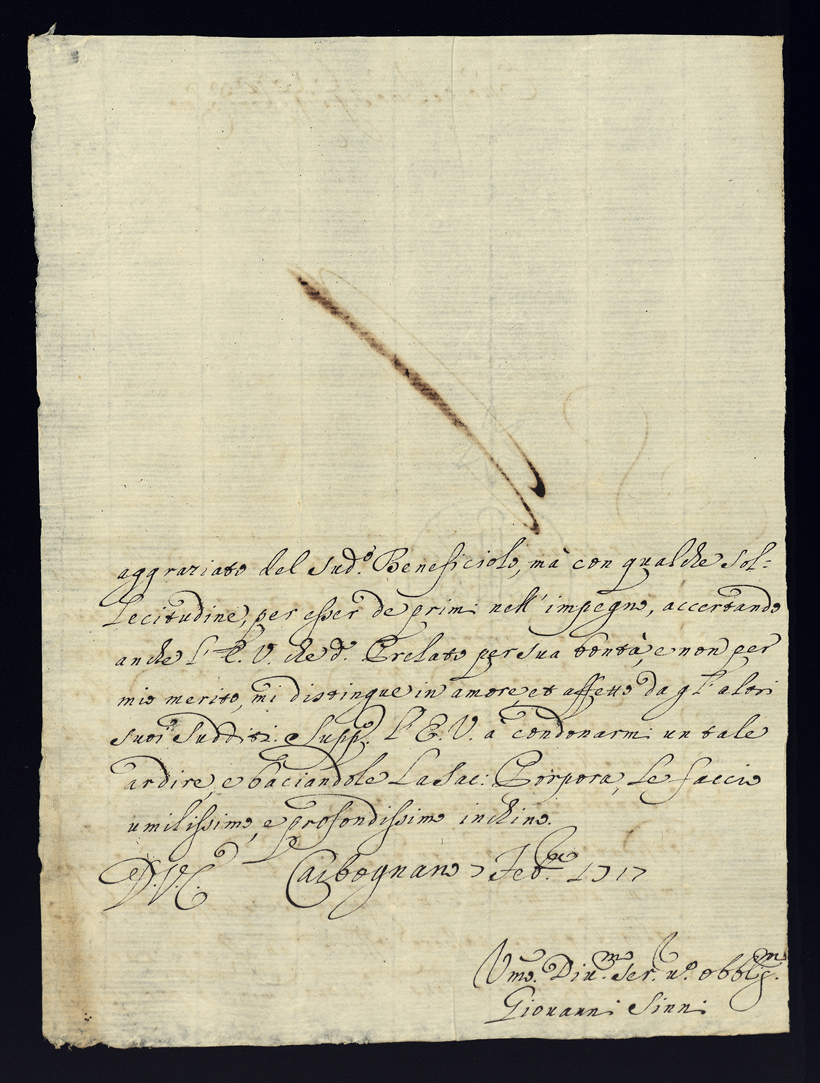 aggraziato del sud.º Beneficiolo, mà con qualche sol=
lecitudine, per esser de primi nell'impegno, accertando
anche l'E. V. che d.º Prelato per sua bontà, e non per
mio merito, mi distingue in amore, et affetto da gl'altri
suoi Sudditi. Supp.º l'E. V. à condonarmi un tale
ardire, e baciandole la Sac: Porpora, le faccio
umilissimo, e profondissimo inchino.
D. V. E. Carbognano 7 Feb.º 1717
Vmo. Diu.mo Ser. u.º obblig.mo
Giovanni Sinni